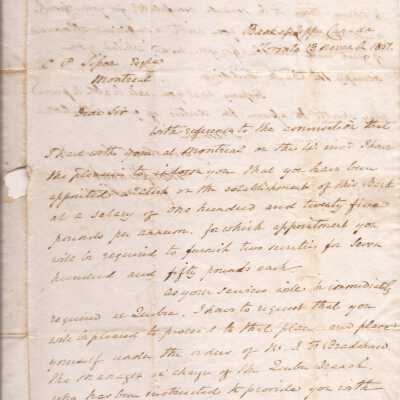 Bank of Upper Canada
Toronto 13 November 1837.
Esqr
Montreal
Dear Sir
With reference to the conversation that
I had with you at Montreal on the inst I have
the pleasure to inform you that you have been
appointed on the establishment of this Bank
at a salary of one hundred and twenty five
pounds per annum. for which appointment you
will be required to furnish two sureties for seven
hundred and fifty pounds each
As your services will be immediately
required at Quebec. I have to request that you
will be pleased to proceed to that place and place
yourself under the orders of Mr Bradshaw
the manager in charge of the Quebec Branch.
who has been instructed to provide you with